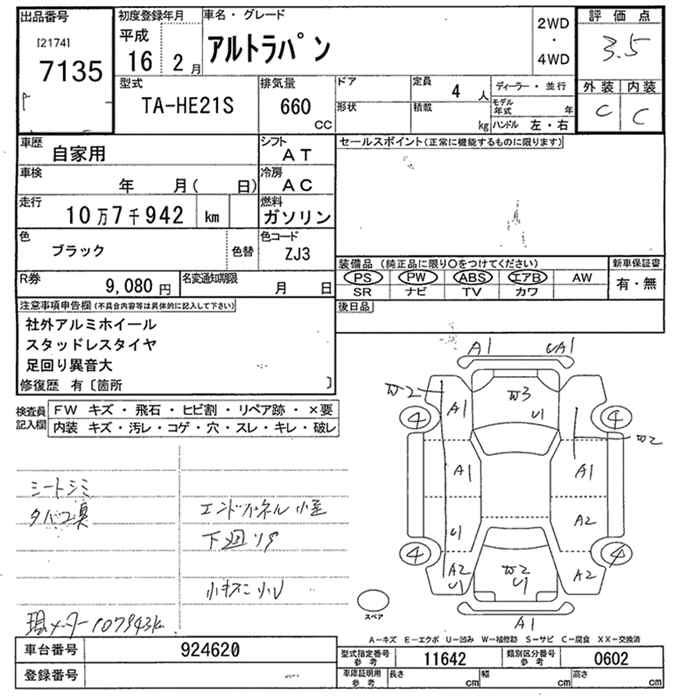 出品番号 初度登録年月 車名・グレード 2WD 評価点
[2174] 平成 ・ 3.5
7135 16 2月 アルトラパン 4WD
型式 排気量 ドア 定員 4 人 ディーラー・並行 外装 内装
TA-HE21S 660 CC 形状 積載 kg モデル年式 年 C C
ハンドル 左・右
車歴 自家用 シフト AT セールスポイント(正常に機能するものに限ります)
車検 年 月( 日) 冷房 AC
走行 10万7千942 km 燃料 ガソリン
色 ブラック 色替 色コード ZJ3
装備品 (純正品に限り○をつけてください) 新車保証書
PS PW ABS エアB AW 有・無
SR ナビ TV カワ
R券 9,080円 名変通知期限 月 日
後日品
注意事項申告欄(不具合内容等は具体的に記入して下さい)
社外アルミホイール
スタッドレスタイヤ
足回り異音大
修復歴 有〔箇所 〕
検査員記入欄 FW キズ・飛石・ヒビ割・リペア跡・×要
内装 キズ・汚レ・コゲ・穴・スレ・キレ・破レ
A1 UA1
W2 A1 W3 U1
4 4
W2
A1 A1
U1 A2
4 4
A2 U1 W2 U1 A2
A1
シートシミ
タバコ臭 エンドパネル小歪
下廻りサ
小キズ小U
現メーター107943km
スペア
A-キズ E-エクボ U-凹み W-補修跡 S-サビ C-腐食 XX-交換済
車台番号 924620 型式指定番号 参考 11642 類別区分番号 参考 0602
登録番号 車庫証明用 参考 長さ cm 幅 cm 高さ cm